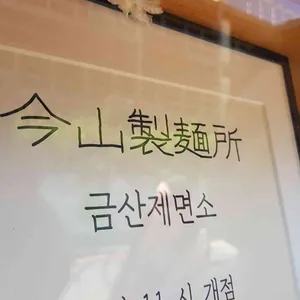 今山製麵所
금산제면소
11 시 개점